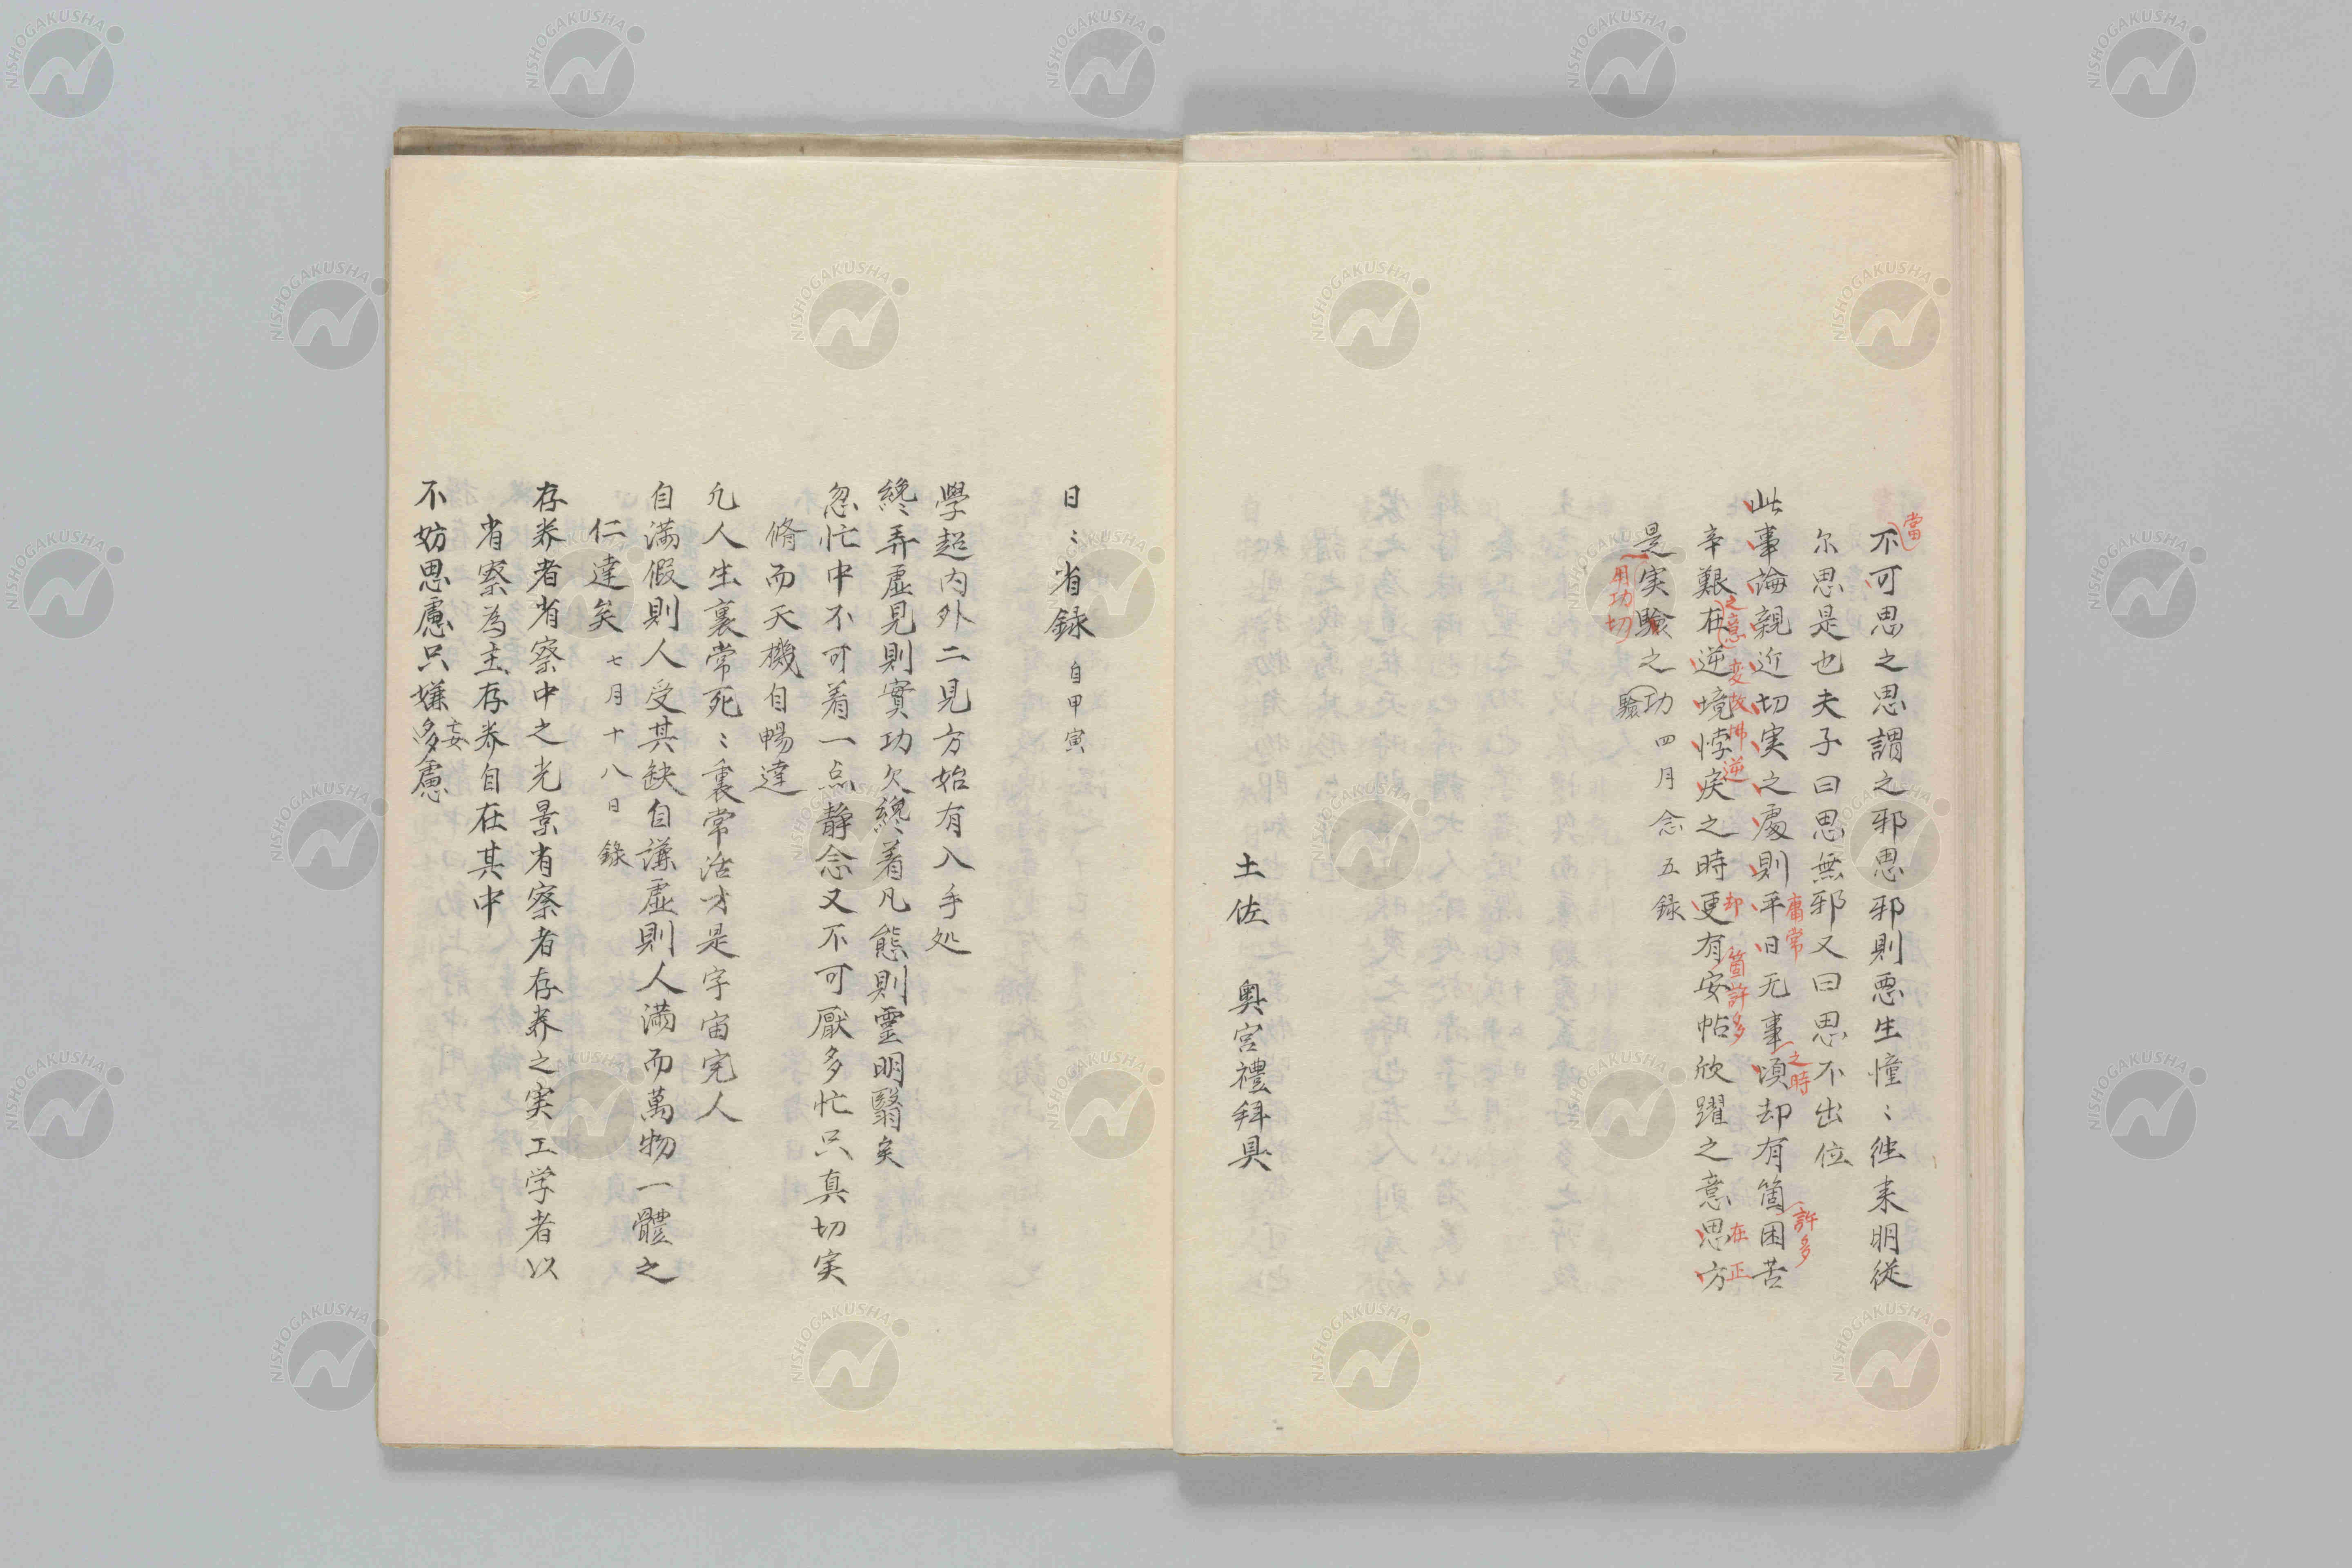 當
不可思之思謂之邪思邪則惡生憧〻徃来明従
尓思是也夫子曰思無邪又曰思不出位
此事論親近切実之處則平日无事頃却有箇困苦
庸常
之時
許多
辛艱在逆境悖戾之時更有安帖欣躍之意思方
之意
変故拂逆
却
箇許多
在正
是実驗之功四月念五録
用功切
驗
土佐 奥宮禮拜具
日〻省録 自甲寅
學超内外二見方始有入手処
纔弄虛見則實功欠纔着凡態則靈明翳矣
忽忙中不可着一点静念又不可厭多忙只真切実
脩而天機自暢達
凡人生裏常死〻裏常活才是宇宙完人
自満假則人受其缺自謙虛則人満而萬物一體之
仁達矣 七月十八日録
存养者省察中之光景省察者存养之実工学者以
省察為主存养自在其中
不妨思慮只嫌多慮
妄
NISHOGAKUSHA